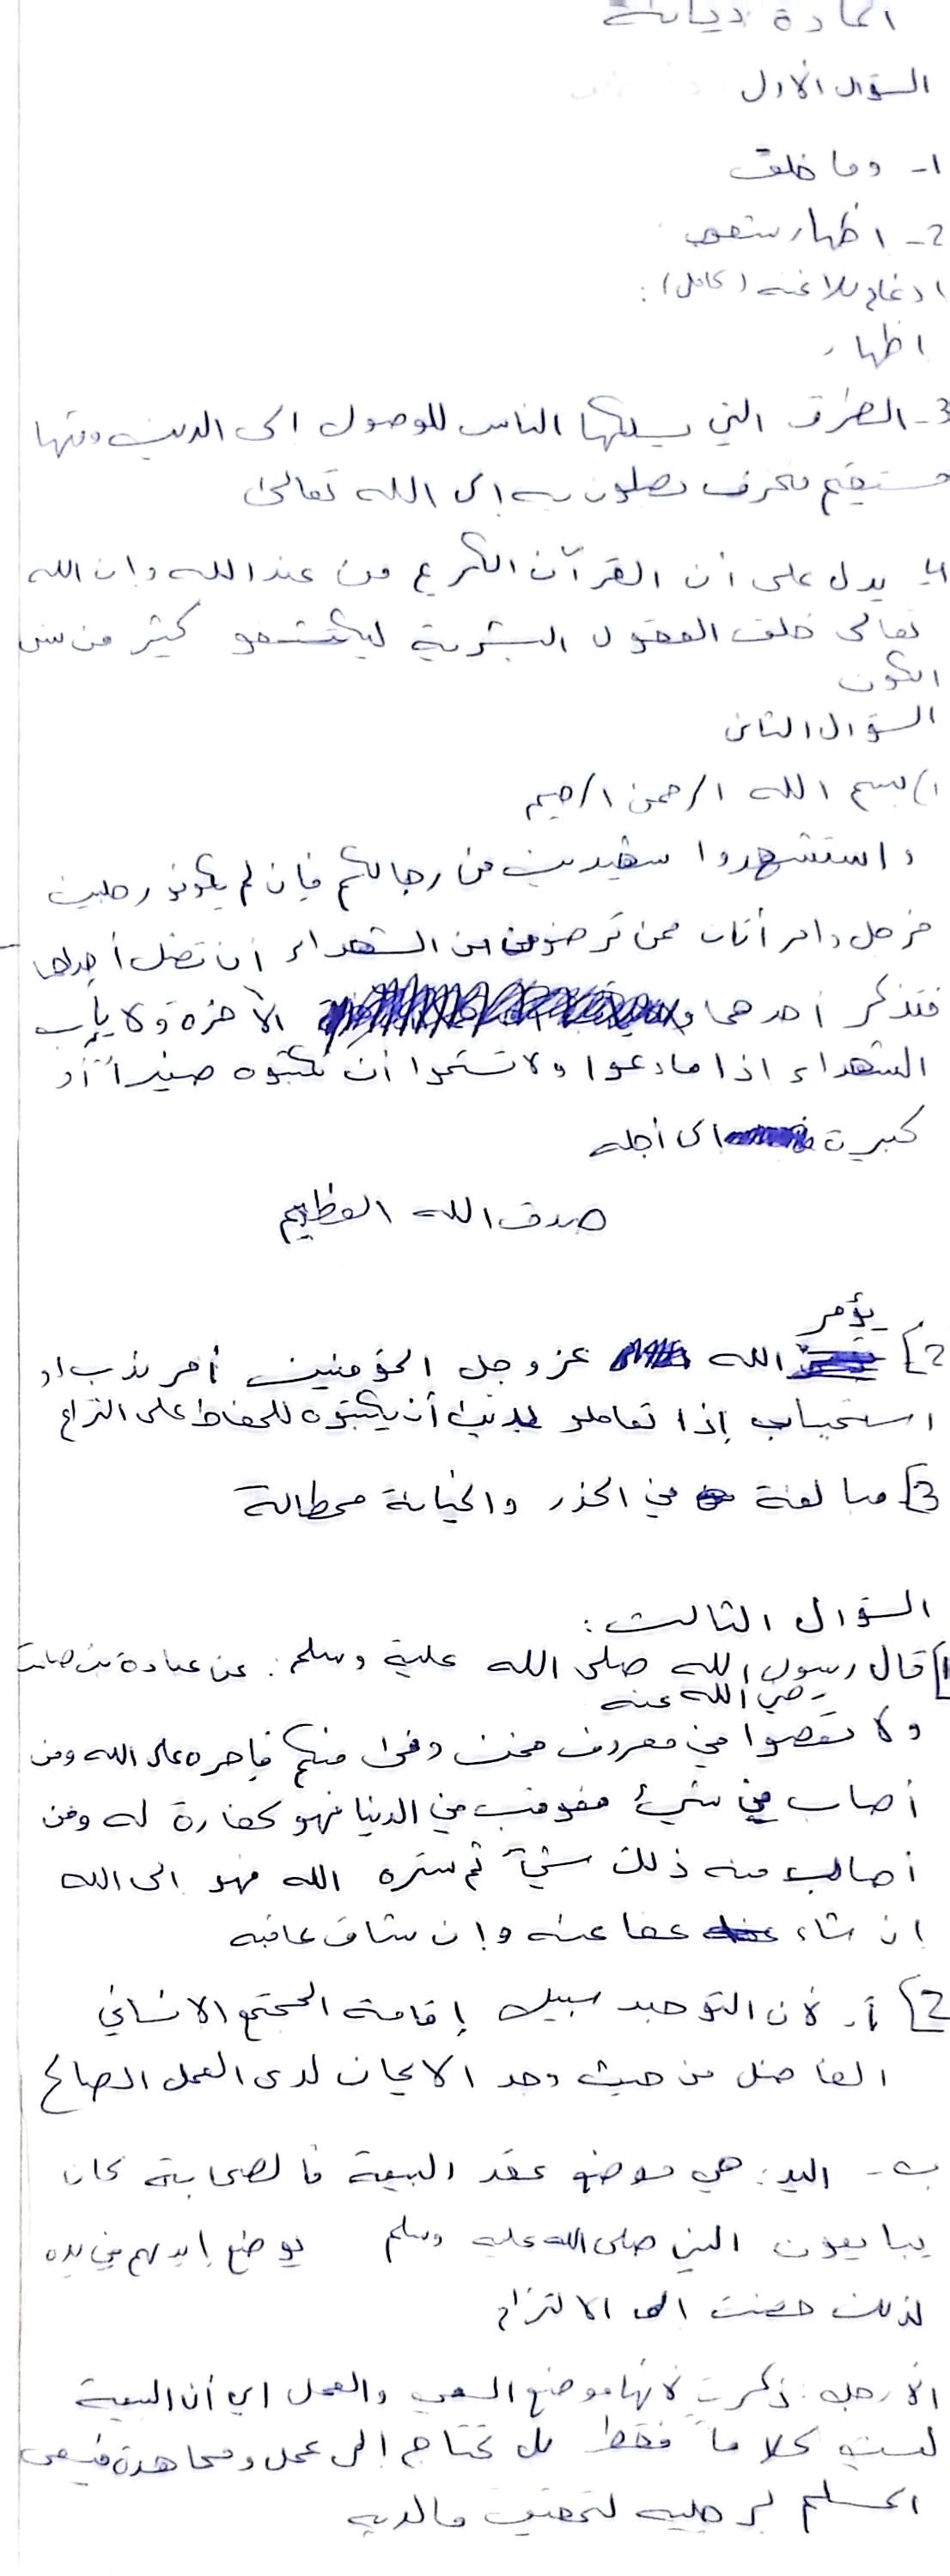 المادة ديانة
السؤال الأول
١- وما خلق
2- اظهار شفوي
ادغام بلا غنه (كامل):
اظهار
3- الطرق التي يسلكها الناس للوصول الى الدين ومنها
مستقيم منحرف يصلون به إلى الله تعالى
4- يدل على أن القرآن الكريم من عند الله وان الله
تعالى خلق العقول البشرية ليكتشفو كثير من سنن
الكون
السؤال الثاني
١) بسم الله الرحمن الرحيم
واستشهدوا شهيدين من رجالكم فإن لم يكونو رجلين
فرجل وامرأتان ممن ترضون من الشهداء أن تضل أحدهما
فتذكر أحدهما الأخرة ولا يأب
الشهداء اذا مادعوا ولا تسئموا أن تكتبوه صغيراً أو
كبيرة الى أجله
صدق الله العظيم
2] يؤمر الله عز وجل المؤمنين أمر ندب او
استحباب إذا تعاملو بدين أن يكتبوه للحفاظ على
3] مبالغة في الحذر والخيانة محطالة
السؤال الثالث:
1] قال رسول الله صلى الله علية وسلم: عن عبادة بن صامت
رضي الله عنه
ولا تعصوا في معروف فمن وفى منكم فاجره على الله ومن
أصاب في شيء فعوقب في الدنيا فهو كفارة له ومن
أصاب منه ذلك شيئ ثم ستره الله فهو الى الله
إن شاء عفا عنه وإن شاء عاقبه
2] أ- لأن التوحيد سبيل إقامة المجتمع الانساني
الفاضل من حيث وجد الايمان لدى العمل الصالح
ب- اليد: هي موضع عقد البيعة فالصحابة كان
يبايعون النبي صلى الله عليه وسلم بوضع إيديهم في يده
لذلك الى الالتزام
الأرجل: ذكرت لأنها موضع السعي والعمل اي أن البيعة
ليست كلاماً فقط بل تحتاج إلى عمل ومجاهدة فيسعى
المسلم برجليه لتحقيق مالديه